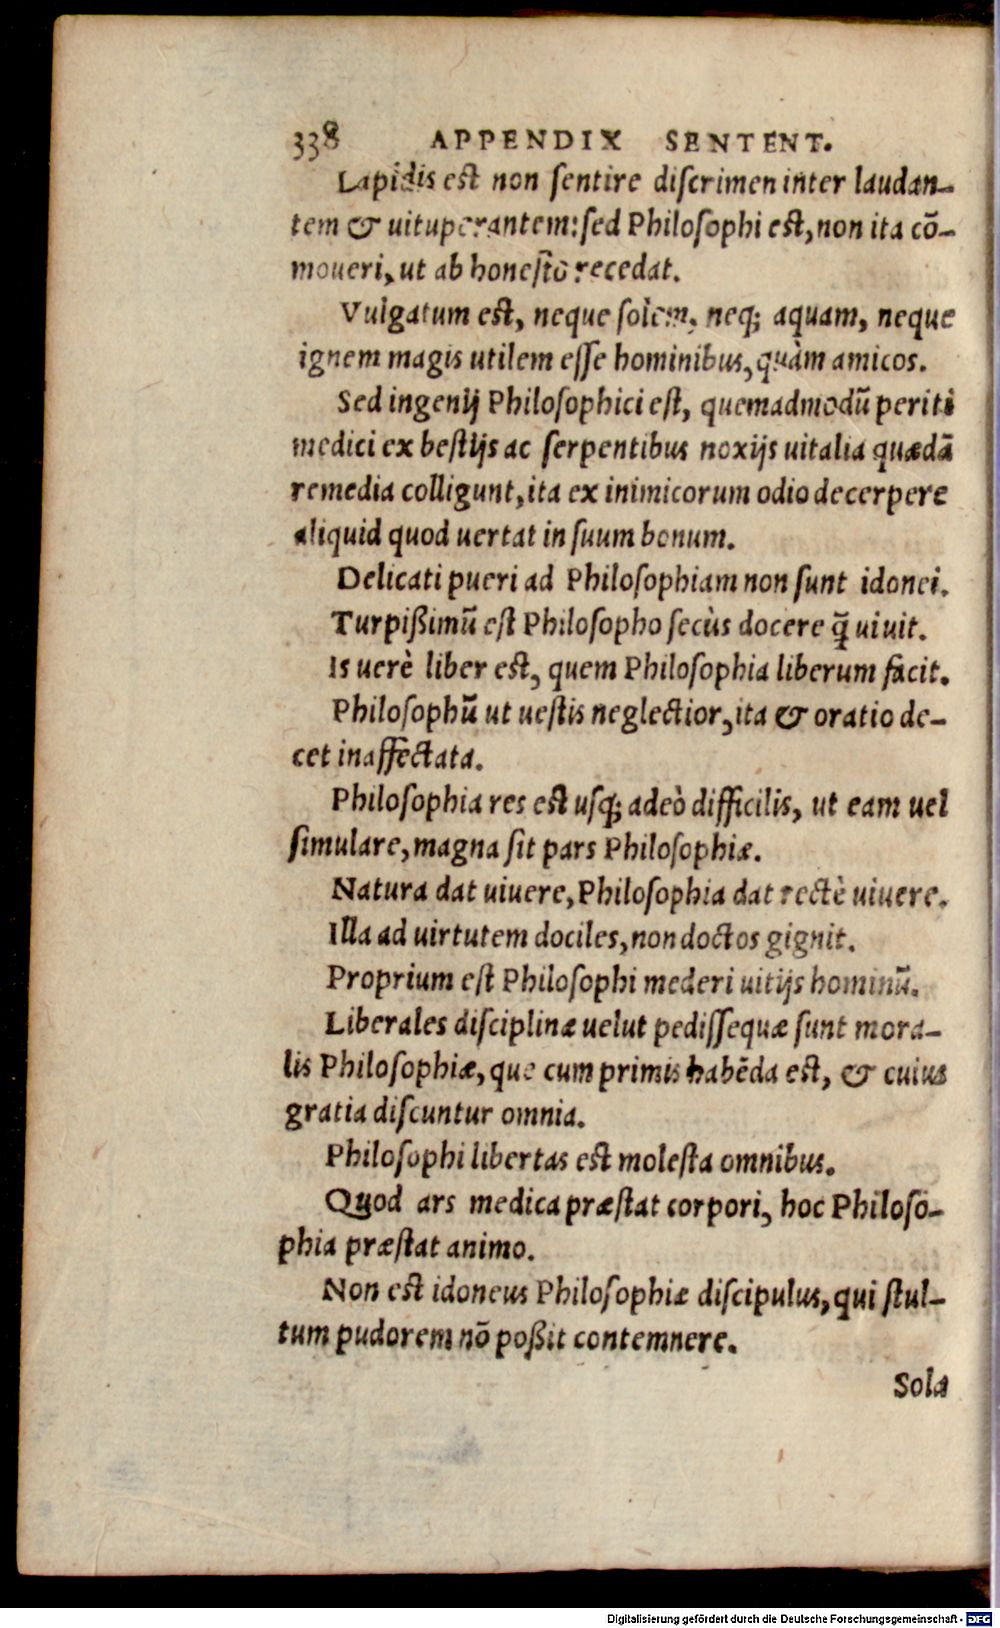 338 APPENDIX SENTENT.
Lapidis est non sentire discrimen inter laudan-
tem & uituperantem: sed Philosophi est, non ita cō-
moueri, ut ab honesto recedat.
Vulgatum est, neque solem, neq; aquam, neque
ignem magis utilem esse hominibus, quàm amicos.
Sed ingenij Philosophici est, quemadmodū periti
medici ex bestijs ac serpentibus noxijs uitalia quædā
remedia colligunt, ita ex inimicorum odio decerpere
aliquid quod uertat in suum bonum.
Delicati pueri ad Philosophiam non sunt idonei.
Turpißimū est Philosopho secùs docere q̄ uiuit.
Is uerè liber est, quem Philosophia liberum facit.
Philosophū ut uestis neglectior, ita & oratio de-
cet inaffectata.
Philosophia res est usq; adeò difficilis, ut eam uel
simulare, magna sit pars Philosophiæ.
Natura dat uiuere, Philosophia dat rectè uiuere.
Illa ad uirtutem dociles, non doctos gignit.
Proprium est Philosophi mederi uitijs hominū.
Liberales disciplinæ uelut pedissequæ sunt mora-
lis Philosophiæ, que cum primis habēda est, & cuius
gratia discuntur omnia.
Philosophi libertas est molesta omnibus.
Quod ars medica præstat corpori, hoc Philoso-
phia præstat animo.
Non est idoneus Philosophiæ discipulus, qui stul-
tum pudorem nō poßit contemnere.
Sola
Digitalisierung gefördert durch die Deutsche Forschungsgemeinschaft - DFG